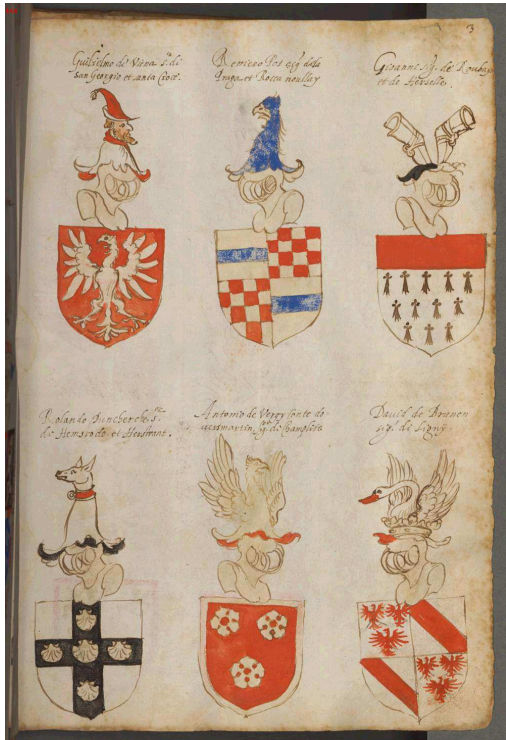 3
Guilielmo de Viena s.r di
san Georgio et santa Croce.
Reniero Pot sig.r della
Praga, et Rocca noullay
Giovanni sig. de Roubay
et de Herselle.
Rolando Duncherche s.r
de Hemsrode, et Hestrunt.
Antonio de Vergy Conte de
sig.r de Champlite
David de Brimeu
sig.r de Ligny